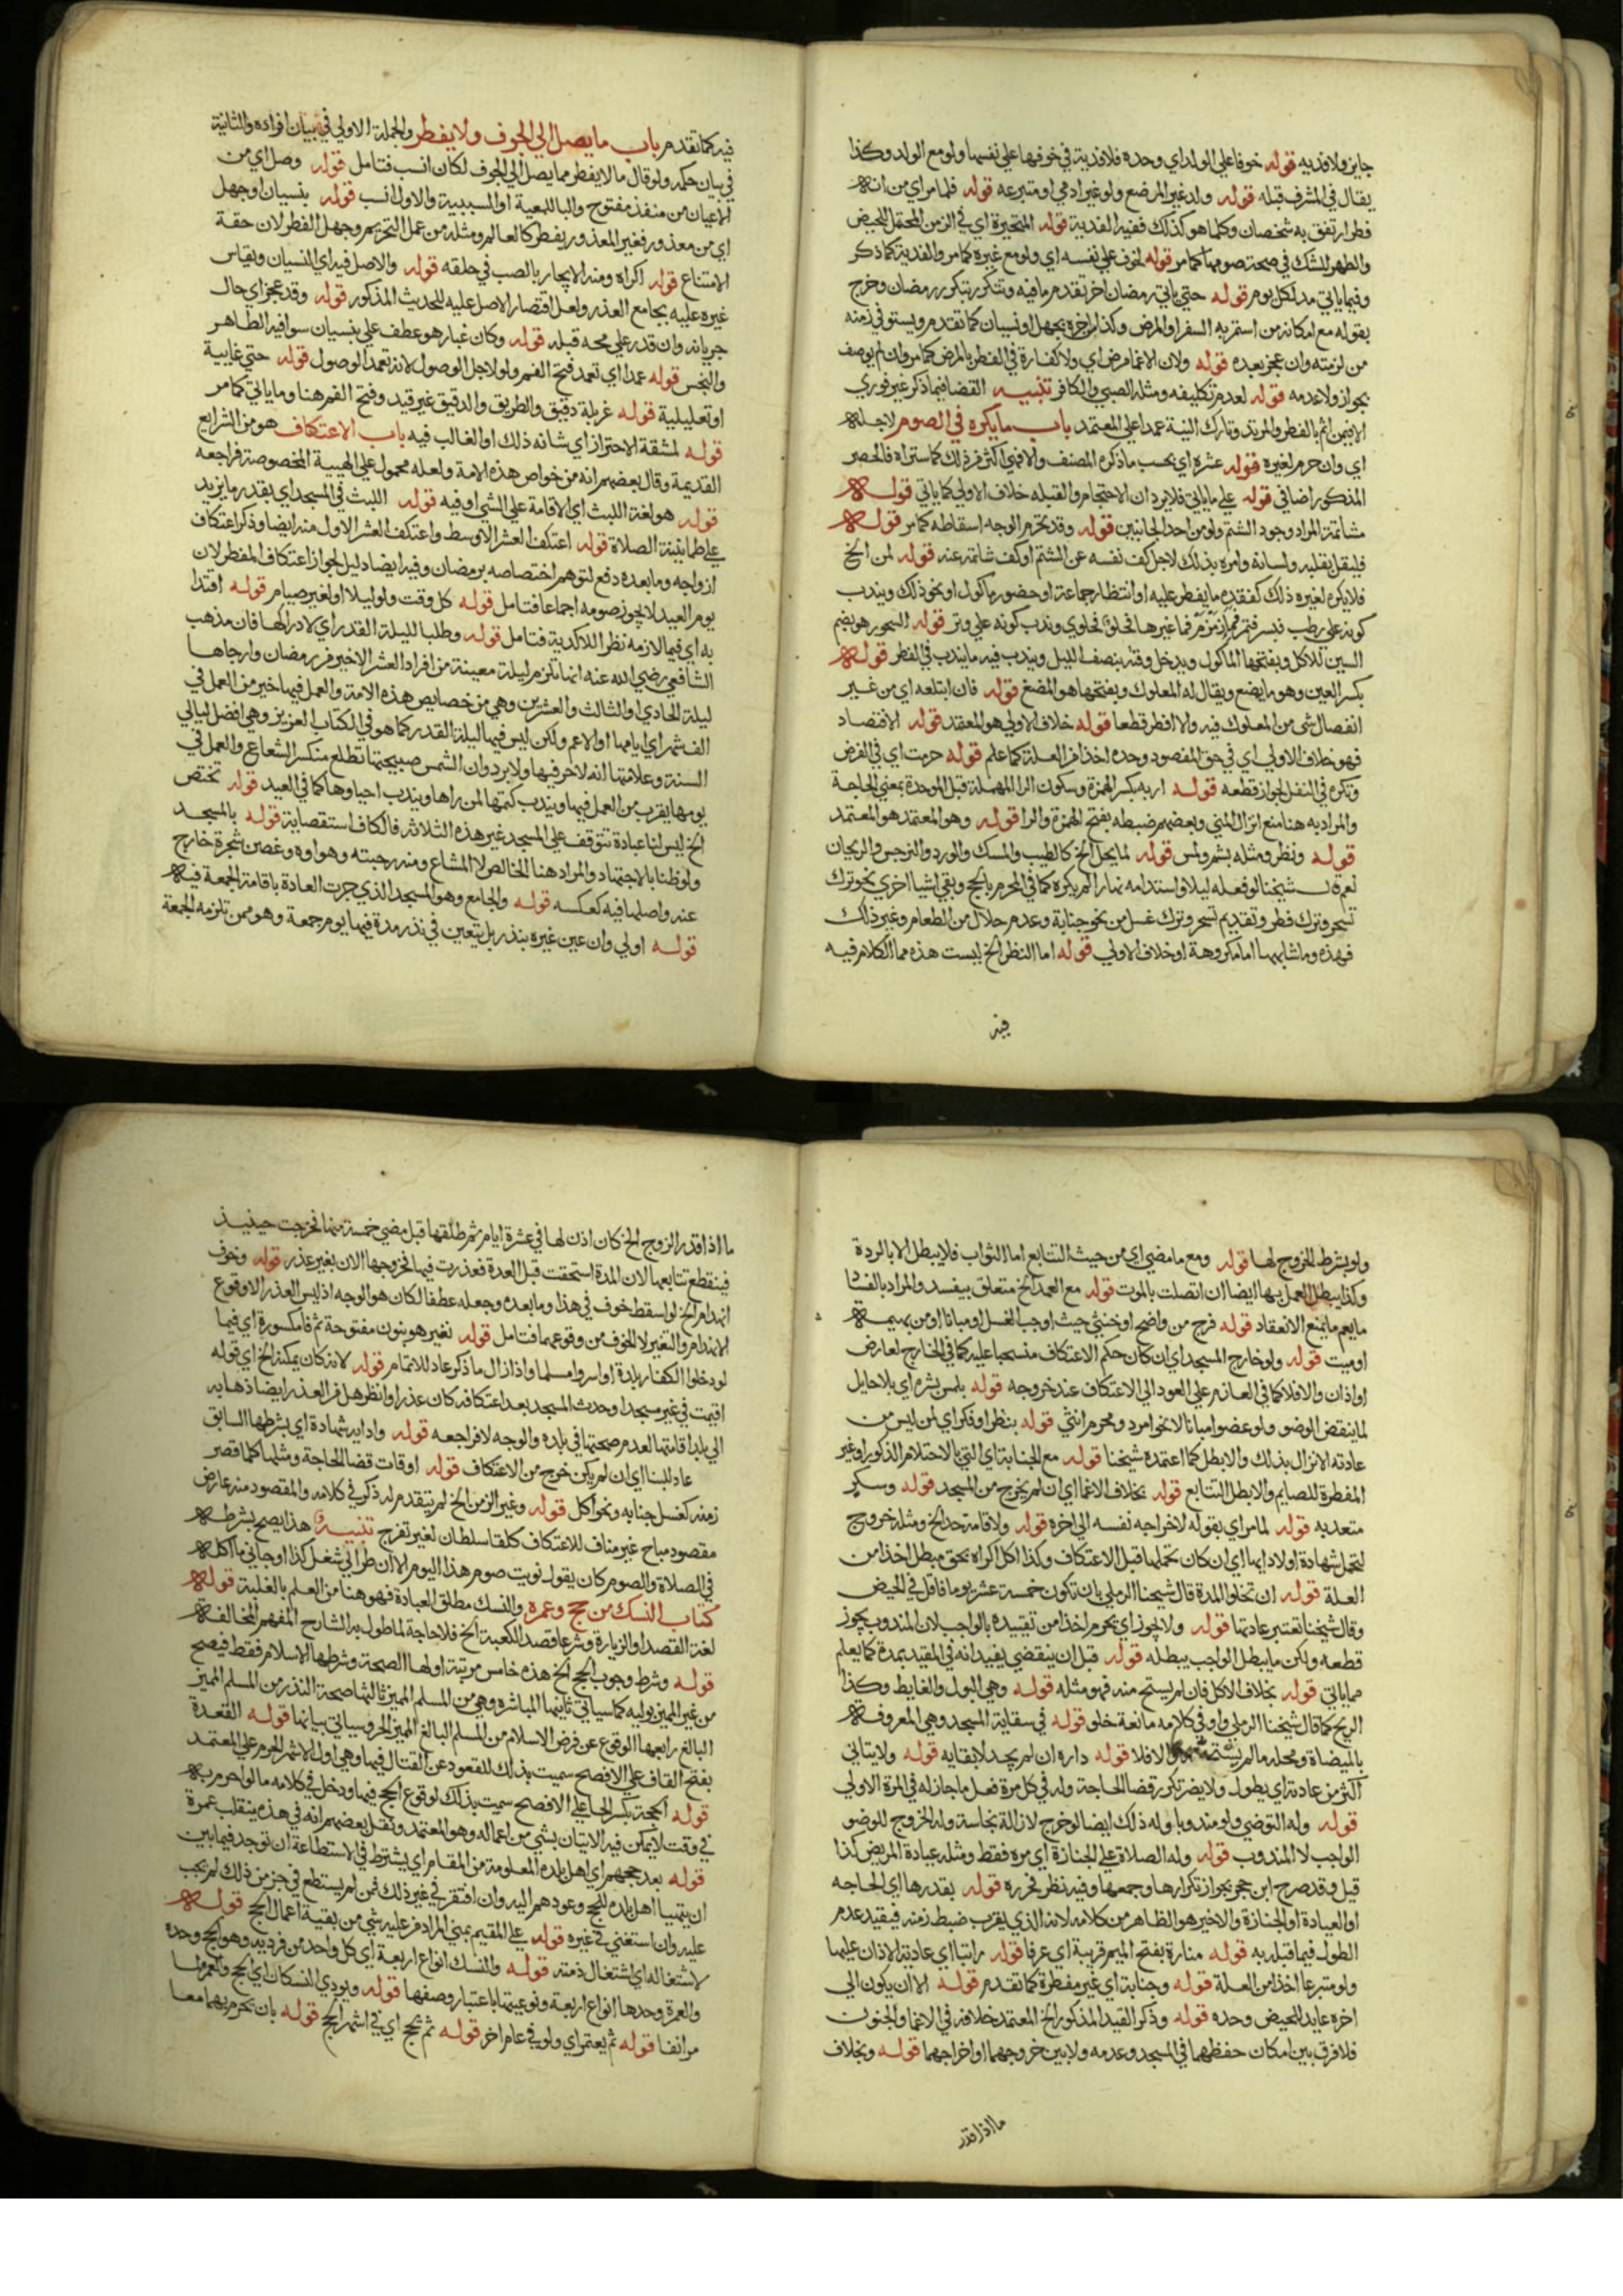 جايز ولا فديه قوله خوفا علي الولد اي وحده فلا فدية في خوفها علي نفسها ولو مع الولد وكذا
يقال في المشرف قبله قوله ولد غير المرضع ولو غير ادمي او متبرعه قوله فلما مر اي من انه
فطر ارتفق به شخصان وكلما هو كذلك ففيه الفدية قوله المتحيرة اي في الزمن المحتمل للحيض
والطهر للشك في صحة صومها كما مر قوله لخوف علي نفسه اي ولو مع غيره كما مر والفدية كما ذكر
وفيما ياتي مد لكل يوم قوله حتي ياتي رمضان اخر تقدم ما فيه وتتكرر بتكرر رمضان وخرج
بقوله مع امكانه من استمر به السفر او المرض وكذا من اخره بجهل او نسيان كما تقدم ويستوفي زمنه
من لزمته وان عجز بعده قوله ولان الاغما مرض اي ولا كفارة في الفطر بالمرض كما مر وان لم يوصف
بجواز ولا عدمه قوله لعدم تكليفه ومثله الصبي والكافر تنبيه القضا فيما ذكر غير فوري
الا فيمن اثم بالفطر والمرتد وتارك النية عمدا علي المعتمد باب ما يكره في الصوم لاجله
اي وان حرم لغيره قوله عشره اي بحسب ما ذكره المصنف والا فهي اكثر من ذلك كما ستراه فالحصر
المذكور اضافي قوله علي ما ياتي فلا يرد ان الاحتجام والقبله خلاف الاولي كما ياتي قوله
مشاتمة المراد وجود الشتم ولو من احد الجانبين قوله وقد يحرم الوجه اسقاطه كما مر قوله
فليقل بقلبه ولسانه وامره بذلك لاجل كف نفسه عن الشتم او كف شاتمه عنه قوله لمن الخ
فلا يكره لغيره ذلك كفقده ما يفطر عليه او انتظار جماعة او حضور ماكول او نحو ذلك ويندب
كونه علي رطب فبسر فتمر فماء زمزم فما غيرها فحلو فحلوي وندب كونه علي وتر قوله السحور هو بضم
السين للاكل وبفتحها الماكول ويدخل وقته بنصف الليل ويندب فيه ما يندب في الفطر قوله
بكسر العين وهو ما يمضغ ويقال له المعلوك وبفتحها هو المضغ قوله فان ابتلعه اي من غير
انفصال شي من المعلوك فيه والا افطر قطعا قوله خلاف الاولي هو المعتمد قوله الافتصاد
فهو خلاف الاولي اي في حق المفصود وحده اخذا من العلة كما علم قوله حرمت اي في الفرض
وتكره في النفل لجواز قطعه قوله اربه بكسر الهمزة وسكون الرا المهملة قبل الموحدة بمعني الحاجة
والمراد به هنا منع انزال المني وبعضهم ضبطه بفتح الهمزة والرا قوله وهو المعتمد هو المعتمد
قوله ونظر ومثله بشم ولمس قوله لما يحل الخ كالطيب والمسك والورد والنرجس والريحان
نعم قال شيخنا لو فعله ليلا واستدامه نهارا لم يكره كما في المحرم بالحج وبقي اشيا اخري نحو ترك
تسحر وترك فطر وتقديم تسحر وترك غسل من نحو جنابة وعدم حلال من الطعام وغير ذلك
فهذه وما شابهها اما مكروهة او خلاف الاولي قوله اما النظر الخ ليست هذه مما الكلام فيه
فيه
فيه كما تقدم باب ما يصل الي الجوف ولا يفطر والجملة الاولي في بيان افراده والثانية
في بيان حكمه ولو قال ما لا يفطر مما يصل الي الجوف لكان انسب فتامل قوله وصل اي من
الاعيان من منفذ مفتوح والبا للمعية او السببية والاول انسب قوله بنسيان او جهل
اي من معذور فغير المعذور يفطر كالعالم ومثله من علم التحريم وجهل الفطر لان حقه
الامتناع قوله اكراه ومنه الايجار بالصب في حلقه قوله والاصل فيه اي النسيان ويقاس
غيره عليه بجامع العذر ولعل اقتصار الاصل عليه للحديث المذكور قوله وقد عجز اي حال
جريانه وان قدر علي مجه قبله قوله وكان غبار هو عطف علي بنسيان سوا فيه الطاهر
والنجس قوله عمدا اي تعمد فتح الفم ولو لاجل الوصول لا نه تعمد الوصول قوله حتي غايية
او تعليلية قوله غربلة دقيق والطريق والدقيق غير قيد وفتح الفم هنا وما ياتي كما مر
قوله لمشقة الاحتراز اي شانه ذلك او الغالب فيه باب الاعتكاف هو من الشرايع
القديمة وقال بعضهم انه من خواص هذه الامة ولعله محمول علي الهيية المخصوصة فراجعه
قوله هو لغة اللبث اي الاقامة علي الشي او فيه قوله اللبث في المسجد اي بقدر ما يزيد
علي طمانينة الصلاة قوله اعتكف العشر الاوسط واعتكف العشر الاول منه ايضا وذكر اعتكاف
ازواجه وما بعده دفع لتوهم اختصاصه برمضان وفيه ايضا دليل لجواز اعتكاف المفطر لان
يوم العيد لا يجوز صومه اجماعا فتامل قوله كل وقت ولو ليلا او لغير صيام قوله اقتدا
به اي فيما لازمه نظرا للاكدية فتامل قوله وطلبا لليلة القدر اي لادراكها فان مذهب
الشافعي رضي الله عنه انها تلزم ليلة معينة من افراد العشر الاخير من رمضان وارجاها
ليلة الحادي او الثالث والعشرين وهي من خصايص هذه الامة والعمل فيها خير من العمل في
الف شهر اي ايامها او الاعم ولكن ليس فيها ليلة القدر كما هو في الكتاب العزيز وهي افضل ليالي
السنة وعلامتها انه لا حر فيها ولا برد وان الشمس صبيحتها تطلع منكسر الشعاع والعمل في
يومها يقرب من العمل فيها ويندب كتمها لمن راها ويندب احياوها كما في العيد قوله تختص
الخ ليس لنا عبادة تتوقف علي المسجد غير هذه الثلاثة فالكاف استقصاية قوله بالمسجد
ولو ظنا بالاجتهاد والمراد هنا الخالص لا المشاع ومنه رحبته وهواوه وغصن شجرة خارج
عنه واصلها فيه كعكسه قوله والجامع وهو المسجد الذي جرت العادة باقامة الجمعة فيه
قوله اولي وان عين غيره بنذر بل يتعين في نذر مدة فيها يوم جمعة وهو ممن تلزمه الجمعة
ولو بشرط الخروج لها قوله ومع ما مضي اي من حيث التتابع اما الثواب فلا يبطل الا بالردة
وكذا يبطل العمل بها ايضا ان اتصلت بالموت قوله مع العمد الخ متعلق بيفسد والمراد بالفساد
ما يعم ما يمنع الانعقاد قوله فرج من واضح او خنثي حيث اوجب الغسل او مبانا او من بهيمة
او ميت قوله ولو خارج المسجد اي ان كان حكم الاعتكاف منسحبا عليه كما في الخارج لعارض
او اذان والا فلا كما في العازم علي العود الي الاعتكاف عند خروجه قوله بلمس بشره اي بلا حايل
لما ينقض الوضو ولو عضوا مبانا لا نحو امرد ومحرم انثي قوله بنظر او فكر اي لمن ليس من
عادته الانزال بذلك والا بطل كما اعتمده شيخنا قوله مع الجنابة اي التي بالاحتلام المذكور او غير
المفطرة للصايم والا بطل التتابع قوله بخلاف الاغما اي ان لم يخرج من المسجد قوله وسكر
متعد به قوله لما مر اي بقوله لاخراجه نفسه الي اخره قوله ولا قامة حد الخ ومثله خروج
لتحمل شهادة او لادايها اي ان كان تحملها قبل الاعتكاف وكذا كل اكراه بحق مبطل اخذا من
العلة قوله ان تخلو المدة قال شيخنا الرملي بان تكون خمسة عشر يوما فاقل في الحيض
وقال شيخنا تعتبر عادتها قوله ولا يجوز اي يحرم اخذا من تقييده بالواجب لان المندوب يجوز
قطعه ولكن ما يبطل الواجب يبطله قوله قبل ان ينقضي يفيد انه في المقيد بمدة كما يعلم
مما ياتي قوله بخلاف الاكل فان لم يستح منه فهو مثله قوله وهي البول والغايط وكذا
الريح كما قال شيخنا الرملي واو في كلامه مانعة خلو قوله في سقاية المسجد وهي المعروفة
بالميضاة ومحله ما لم والا فلا قوله داره ان لم يجد لايقا به قوله ولا يتاني
اكثر من عادته اي يطول ولا يضر تكرر قضا الحاجة وله في كل مرة فعل ما جاز له في المرة الاولي
قوله وله التوضي ولو مندوبا وله ذلك ايضا لو خرج لازالة نجاسة وله الخروج للوضو
الواجب لا المندوب قوله وله الصلاة علي الجنازة اي مره فقط ومثله عيادة المريض كذا
قيل وقد صرح ابن حجر بجواز تكرارها وجمعها وفيه نظر فحرره قوله بقدرها اي الحاجه
او العيادة او الجنازة والاخير هو الظاهر من كلامه لانه الذي يقرب ضبط زمنه فيقيد عدم
الطول فيما قبله به قوله منارة بفتح الميم قريبة اي عرفا قوله راتبا اي عادته الاذان عليها
ولو متبرعا اخذا من العلة قوله وجنابة اي غير مفطرة كما تقدم قوله الا ان يكون الي
اخره عايد للحيض وحده قوله وذكر القيد المذكور الخ المعتمد خلافه في الاغما والجنون
فلا فرق بين امكان حفظهما في المسجد وعدمه ولا بين خروجهما او اخراجهما قوله وبخلاف
ما اذا قدر
ما اذا قدر الزوج الخ كان اذن لها في عشرة ايام ثم طلقها قبل مضي خمسة منها فخرجت حينيذ
فينقطع تتابعها لان المدة استحقت قبل العدة فعذرت فيها فخروجها الان بغير عذر قوله وخوف
انهدام الخ لو اسقط خوف في هذا وما بعده وجعله عطفا لكان هو الوجه اذ ليس العذر الا وقوع
الانهدام والنفير لا الخوف من وقوعهما فتامل قوله نفير هو بنون مفتوحة ثم فا مكسورة اي فيما
لو دخلوا الكفار بلدة او اسروا مسلما واذا زال ما ذكر عاد للاتمام قوله لا نه كان يمكنه الخ اي قوله
اقيمت في غير مسجد او حدث المسجد بعد اعتكافه كان عذرا وانظر هل من العذر ايضا ذهابه
الي بلد اقامتها لعدم صحتها في بلده والوجه لا فراجعه قوله وادايه شهادة اي بشرطها السابق
عاد للبنا اي ان لم يكن خرج من الاعتكاف قوله اوقات قضا الحاجة ومثلها كلما قصر
زمنه كغسل جنابه ونحو اكل قوله وغير الزمن الخ لم يتقدم له ذكر في كلامه والمقصود منه عارض
مقصود مباح غير مناف للاعتكاف كلقا سلطان لغير تفرج تنبيه هذا يصح بشرطه
في الصلاة والصوم كان يقول نويت صوم هذا اليوم الا ان طرا لي شغل كذا او جاني ما اكله
كتاب النسك من حج وعمرة والنسك مطلق العبادة فهو هنا من العلم بالغلبة قوله
لغة القصد او الزيارة وشرعا قصد الكعبة الخ فلا حاجة لما طول به الشارح المفهم المخالفه
قوله وشرط وجوب الحج الخ هذه خامس مرتبة اولها الصحة وشرطها الاسلام فقط فيصح
من غير المميز بوليه كما سياتي ثانيها المباشره وهي من المسلم المميز ثالثها صحة النذر من المسلم المميز
البالغ رابعها الوقوع عن فرض الاسلام من المسلم البالغ المميز الحر وسياتي بيانها قوله القعدة
بفتح القاف علي الافصح سميت بذلك للقعود عن القتال فيها وهي اول الاشهر الحرم علي المعتمد
قوله الحجة بكسر الحا علي الافصح سميت بذلك لوقوع الحج فيها ودخل في كلامه ما لو احرم به
في وقت لا يمكن فيه الاتيان بشي من اعماله وهو المعتمد ونقل بعضهم انه في هذه ينقلب عمرة
قوله بعد حجهم اي اهل بلده المعلومة من المقام اي يشترط في الاستطاعة ان توجد فيما بين
ان يتهيا اهل بلده للحج وعودهم اليه وان افتقر في غير ذلك فمن لم يستطع في جز من ذلك لم يجب
عليه وان استغني في غيره قوله علي المقيم بمني المراد من عليه شي من بقية اعمال الحج قوله
لاشتغاله اي اشتغال ذمته قوله والنسك انواع اربعة اي كل واحد من فرديه وهو الحج وحده
والعمرة وحدها انواع اربعة ونوعيتها باعتبار وصفها قوله ويودي النسكان اي الحج والعمرة لما
مر انفا قوله ثم يعتمر اي ولو في عام اخر قوله ثم يحج اي في اشهر الحج قوله بان يحرم بهما معا